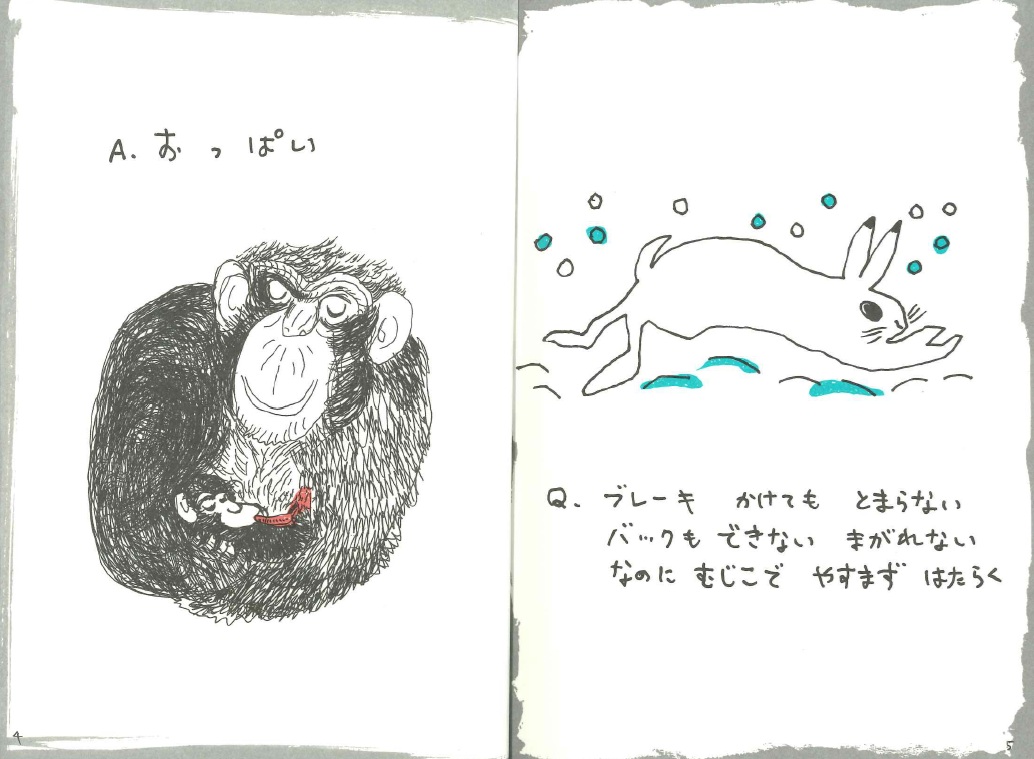 A. おっぱい
4
Q. ブレーキ かけても とまらない
バックも できない まがれない
なのに むじこで やすまず はたらく
5